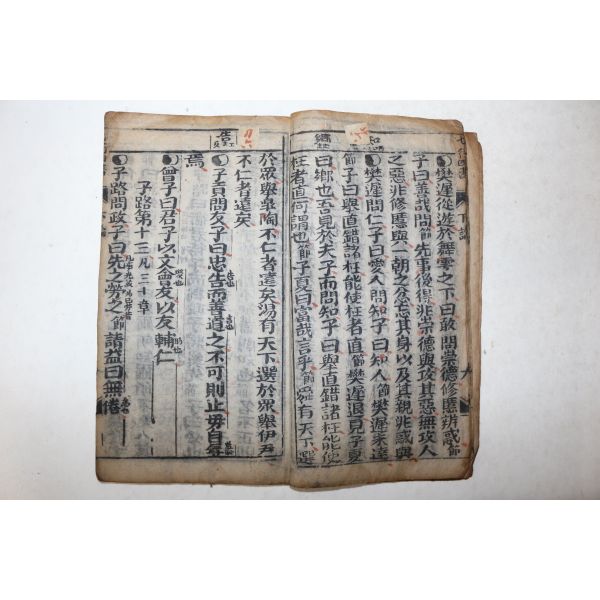 下論
樊遲從遊於舞雩之下曰敢問崇德修慝辨惑節
子曰善哉問節先事後得非崇德與攻其惡無攻人
之惡非修慝與一朝之忿忘其身以及其親非惑與
樊遲問仁子曰愛人問知子曰知人節樊遲未達
節子曰擧直錯諸枉能使枉者直節樊遲退見子夏
曰鄕也吾見於夫子而問知子曰擧直錯諸枉能使
枉者直何謂也節子夏曰富哉言乎節舜有天下選
於眾擧皐陶不仁者遠矣湯有天下選於眾擧伊尹
不仁者遠矣
子貢問友子曰忠告而善道之不可則止毋自辱
焉
曾子曰君子以文會友以友輔仁
子路第十三凡三十章
子路問政子曰先之勞之節請益曰無倦